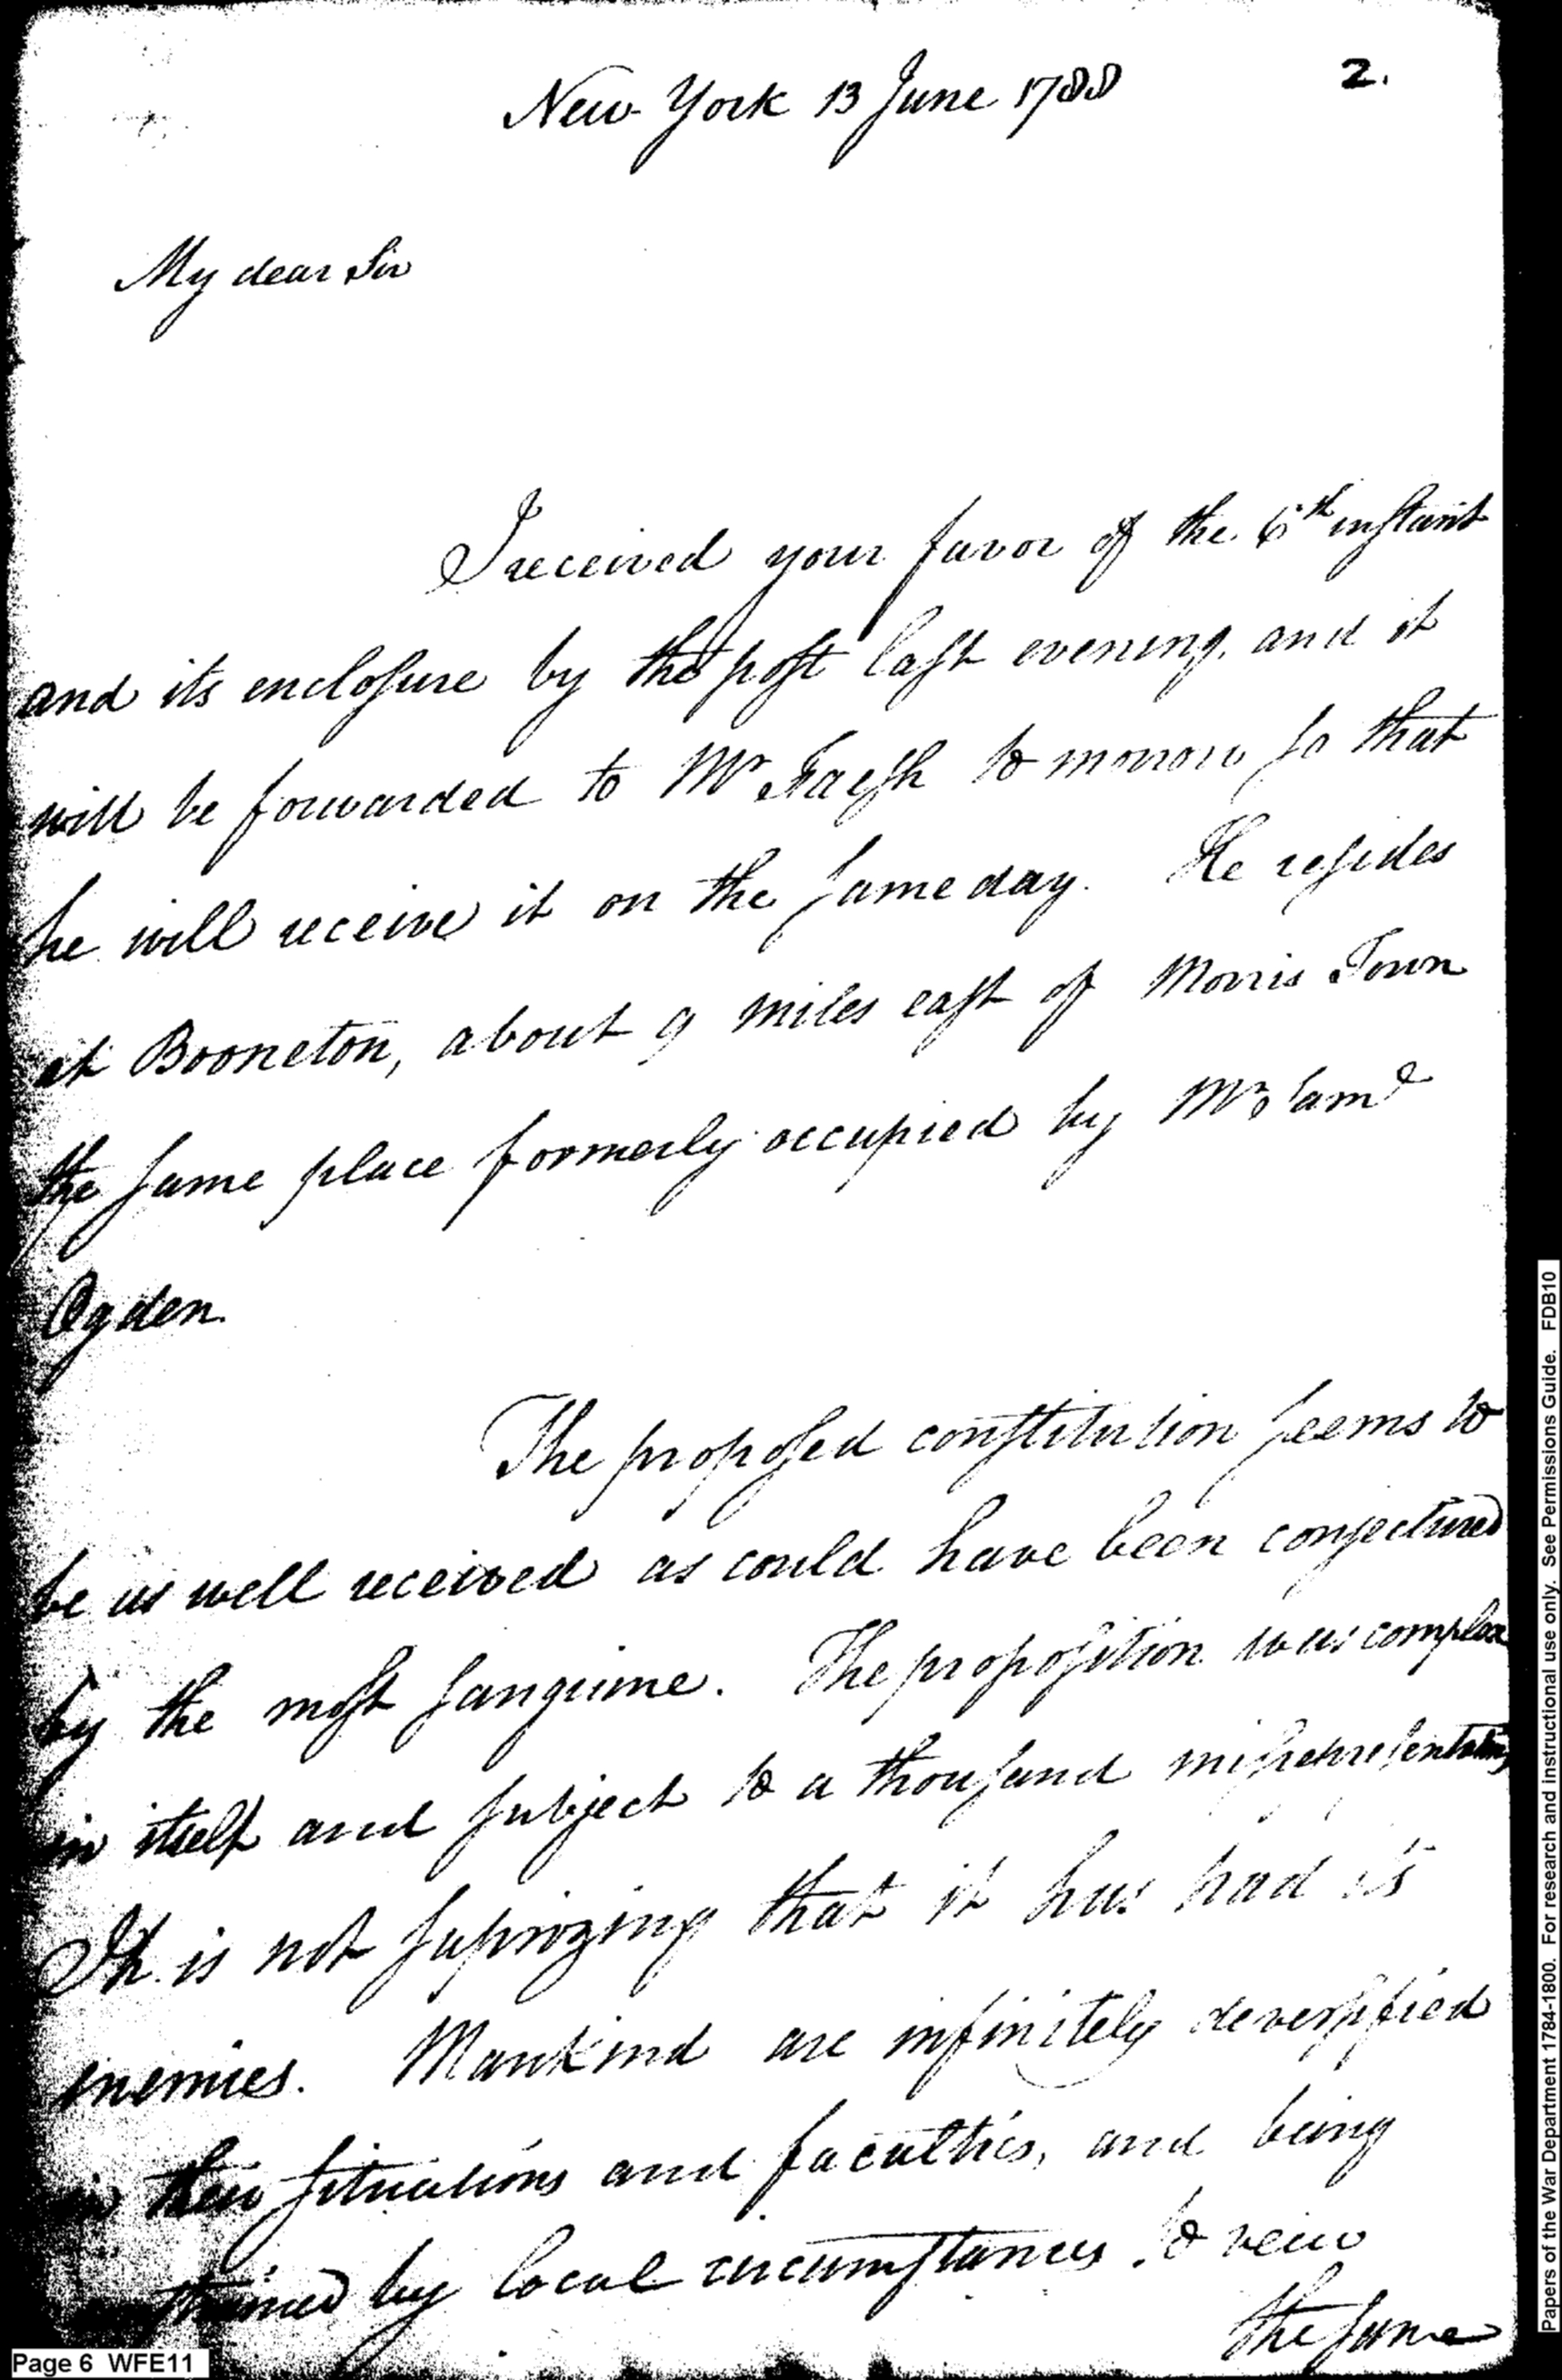 New York 13 June 1788
2.
My dear Sir
I received your favor of the 6th instant
and its enclosure by the post last evening, and it
will be forwarded to Mr Faesh to morrow so that
he will receive it on the same day. He resides
at Booneton, about 9 miles east of Morris Town
the same place formerly occupied by Mr Saml
Ogden.
The proposed constitution seems to
be as well received as could have been conjectured
by the most sanguine. The proposition was complex
in itself and subject to a thousand misrepresentations
It is not suprizing that it has had its
enemies. Mankind are infinitely deversified
in their situations and faculties, and being
by local circumstances to veiw
the same
Page 6 WFE11
Papers of the War Department 1784-1800. For research and instructional use only. See Permissions Guide. FDB10